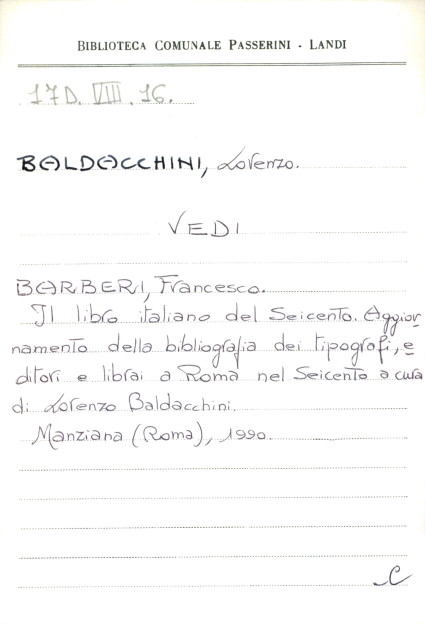 BIBLIOTECA COMUNALE PASSERINI - LANDI
17D. VIII. 16.
BALDACCHINI, Lorenzo.
VEDI
BARBERI, Francesco.
Il libro italiano del Seicento. Aggior
namento della bibliografia dei tipografi, e
ditori e librai a Roma nel Seicento a cura
di Lorenzo Baldacchini.
Manziana (Roma), 1990.
C